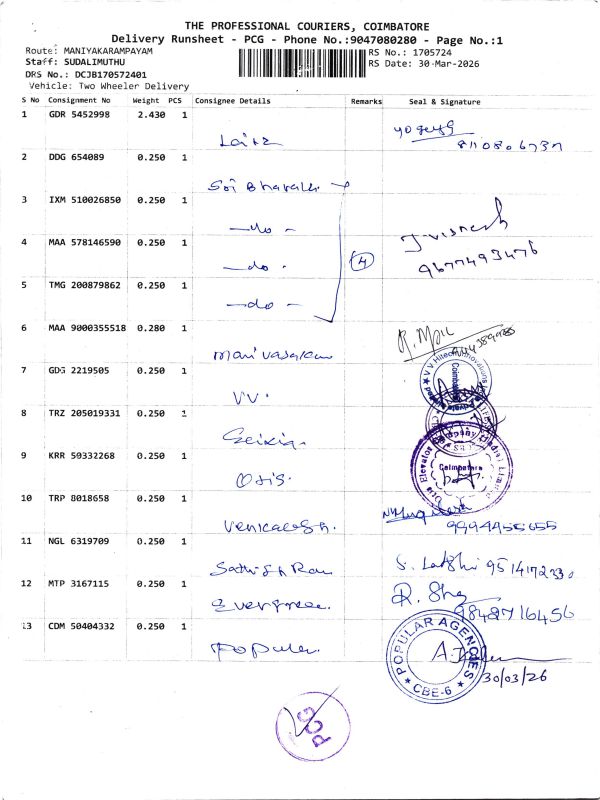 THE PROFESSIONAL COURIERS, COIMBATORE
Delivery Runsheet - PCG - Phone No.:9047080280 - Page No.:1
Route: MANIYAKARAMPAYAM
RS No.: 1705724
Staff: SUDALIMUTHU
RS Date: 30-Mar-2026
DRS No.: DCJB170572401
Vehicle: Two Wheeler Delivery
S No Consignment No Weight PCS Consignee Details Remarks Seal & Signature
1 GDR 5452998 2.430 1
8110806737
2 DDG 654089 0.250 1
Sri Bharathi
3 IXM 510026850 0.250 1
-do-
J. Vignesh
4 MAA 578146590 0.250 1
-do-
4
9677493476
5 TMG 200879862 0.250 1
-do-
6 MAA 9000355518 0.280 1
Manivasakam
R. Mani
7 GDG 2219505 0.250 1
VV.
V V Hitech Innovations
Coimbatore
8 TRZ 205019331 0.250 1
9 KRR 50332268 0.250 1
Otis.
Otis Elevator Company (India) Limited
Coimbatore
10 TRP 8018658 0.250 1
Venkatesh.
9994455655
11 NGL 6319709 0.250 1
Sathish Ran
12 MTP 3167115 0.250 1
Evergree.
9848716456
13 CDM 50404332 0.250 1
Popular.
POPULAR AGENCIES
CBE-6
30/03/26
PCG